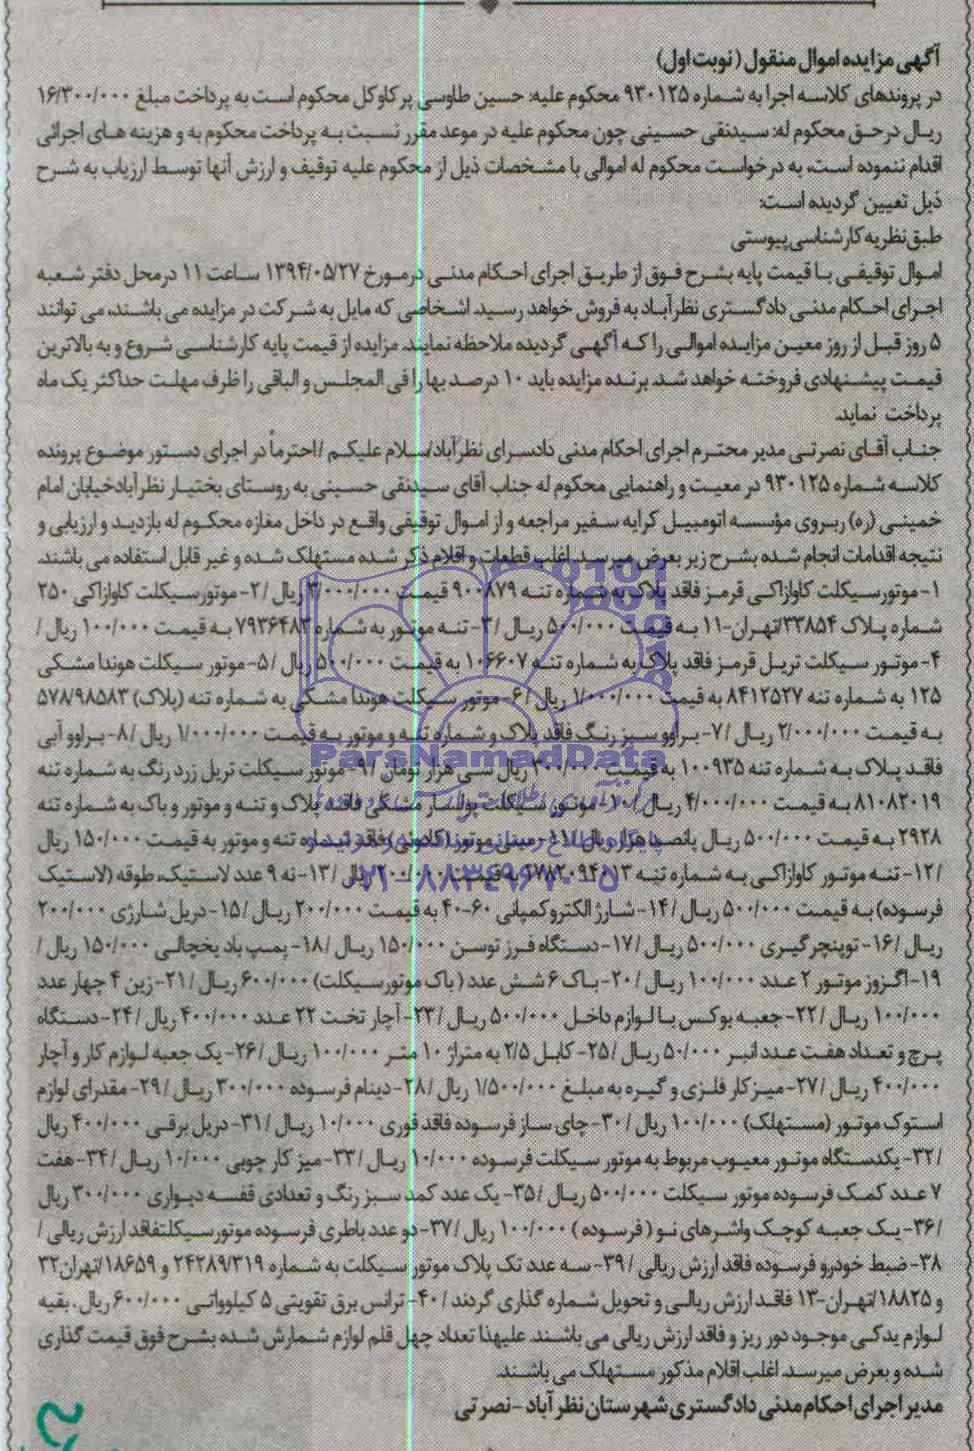 آگهی مزایده اموال منقول (نوبت اول)
در پروندهای کلاسه اجرا به شماره ۹۳۰۱۲۵ محکوم علیه: حسین طاوسی پرکاوکل محکوم است به پرداخت مبلغ ۱۶/۳۰۰/۰۰۰
ریال در حق محکوم له: سیدنقی حسینی چون محکوم علیه در موعد مقرر نسبت به پرداخت محکوم به و هزینه های اجرائی
اقدام ننموده است، به درخواست محکوم له اموالی با مشخصات ذیل از محکوم علیه توقیف و ارزش آنها توسط ارزیاب به شرح
ذیل تعیین گردیده است:
طبق نظریه کارشناسی پیوستی
اموال توقیفی با قیمت پایه بشرح فوق از طریق اجرای احکام مدنی درمورخ ۱۳۹۴/۰۵/۲۷ ساعت ۱۱ درمحل دفتر شعبه
اجرای احکام مدنی دادگستری نظرآباد به فروش خواهد رسید. اشخاصی که مایل به شرکت در مزایده می باشند، می توانند
۵ روز قبل از روز معین مزایده اموالی را که آگهی گردیده ملاحظه نمایند. مزایده از قیمت پایه کارشناسی شروع و به بالاترین
قیمت پیشنهادی فروخته خواهد شد. برنده مزایده باید ۱۰ درصد بها را فی المجلس و الباقی را ظرف مهلت حداکثر یک ماه
پرداخت نماید.
جناب آقای نصرتی مدیر محترم اجرای احکام مدنی دادسرای نظرآباد/سلام علیکم /احتراماً در اجرای دستور موضوع پرونده
کلاسه شماره ۹۳۰۱۲۵ در معیت و راهنمایی محکوم له جناب آقای سیدنقی حسینی به روستای بختیار نظرآبادخیابان امام
خمینی (ره) ربروی مؤسسه اتومبیل کرایه سفیر مراجعه و از اموال توقیفی واقع در داخل مغازه محکوم له بازدید و ارزیابی و
نتیجه اقدامات انجام شده بشرح زیر بعرض میرسد. اغلب قطعات و اقلام ذکر شده مستهلک شده و غیر قابل استفاده می باشند.
۱-موتورسیکلت کاوازاکی قرمز فاقد پلاک به شماره تنه ۹۰۰۸۷۹ قیمت ۳/۰۰۰/۰۰۰ ریال /۲- موتورسیکلت کاوازاکی ۲۵۰
شماره پلاک ۳۳۸۵۴/تهران-۱۱ به قیمت ۵۰۰/۰۰۰ ریال /۳- تنه موتور به شماره ۷۹۳۶۴۸۳ به قیمت ۱۰۰/۰۰۰ ریال /
۴-موتور سیکلت تریل قرمز فاقد پلاک به شماره تنه ۱۰۶۶۰۷ به قیمت ۵۰۰/۰۰۰ ریال /۵- موتور سیکلت هوندا مشکی
۱۲۵ به شماره تنه ۸۴۱۲۵۲۷ به قیمت ۱/۰۰۰/۰۰۰ ریال /۶- موتور سیکلت هوندا مشکی به شماره تنه (پلاک) ۵۷۸/۹۸۵۸۳
به قیمت ۲/۰۰۰/۰۰۰ ریال /۷- براوو سبز رنگ فاقد پلاک و شماره تنه و موتور به قیمت ۱/۰۰۰/۰۰۰ ریال /۸- براوو آبی
فاقد پلاک به شماره تنه ۱۰۰۹۳۵ به قیمت ۳۰۰/۰۰۰ ریال سی هزار تومان /۹- موتور سیکلت تریل زرد رنگ به شماره تنه
۸۱۰۸۲۰۱۹ به قیمت ۴/۰۰۰/۰۰۰ ریال /۱۰- موتور سیکلت پولسار مشکی فاقد پلاک و تنه و موتور و باک به شماره تنه
۲۹۲۸ به قیمت ۵۰۰/۰۰۰ ریال پانصد هزار ریال /۱۱- مینی موتور (کادوئی) فاقد شماره تنه و موتور به قیمت ۱۵۰/۰۰۰ ریال
/۱۲- تنه موتور کاوازاکی به شماره تنه به قیمت ۲۰۰/۰۰۰ ریال /۱۳- نه ۹ عدد لاستیک، طوقه (لاستیک
فرسوده) به قیمت ۵۰۰/۰۰۰ ریال /۱۴- شارژ الکتروکمپانی ۶۰-۴۰ به قیمت ۲۰۰/۰۰۰ ریال /۱۵- دریل شارژی ۲۰۰/۰۰۰
ریال /۱۶- توپنچرگیری ۵۰۰/۰۰۰ ریال /۱۷- دستگاه فرز توسن ۱۵۰/۰۰۰ ریال /۱۸- پمپ باد یخچالی ۱۵۰/۰۰۰ ریال /
۱۹- اگزوز موتور ۲ عدد ۱۰۰/۰۰۰ ریال /۲۰- باک ۶ شش عدد (باک موتورسیکلت) ۶۰۰/۰۰۰ ریال /۲۱- زین ۴ چهار عدد
۱۰۰/۰۰۰ ریال /۲۲- جعبه بوکس با لوازم داخل ۵۰۰/۰۰۰ ریال /۲۳- آچار تخت ۲۲ عدد ۴۰۰/۰۰۰ ریال /۲۴- دستگاه
پرچ و تعداد هفت عدد انبر ۵۰/۰۰۰ ریال /۲۵- کابل ۲/۵ به متراژ ۱۰ متر ۱۰۰/۰۰۰ ریال /۲۶- یک جعبه لوازم کار و آچار
۴۰۰/۰۰۰ ریال /۲۷- میز کار فلزی و گیره به مبلغ ۱/۵۰۰/۰۰۰ ریال /۲۸- دینام فرسوده ۳۰۰/۰۰۰ ریال /۲۹- مقدرای لوازم
استوک موتور (مستهلک) ۱۰۰/۰۰۰ ریال /۳۰- چای ساز فرسوده فاقد قوری ۱۰/۰۰۰ ریال /۳۱- دریل برقی ۴۰۰/۰۰۰ ریال
/۳۲- یکدستگاه موتور معیوب مربوط به موتور سیکلت فرسوده ۱۰/۰۰۰ ریال /۳۳- میز کار چوبی ۱۰/۰۰۰ ریال /۳۴- هفت
۷ عدد کمک فرسوده موتور سیکلت ۵۰۰/۰۰۰ ریال /۳۵- یک عدد کمد سبز رنگ و تعدادی قفسه دیواری ۳۰۰/۰۰۰ ریال
/۳۶- یک جعبه کوچک واشرهای نو (فرسوده) ۱۰۰/۰۰۰ ریال /۳۷- دو عدد باطری فرسوده موتورسیکلتفاقد ارزش ریالی /
۳۸- ضبط خودرو فرسوده فاقد ارزش ریالی /۳۹- سه عدد تک پلاک موتور سیکلت به شماره ۲۴۲۸۹/۳۱۹ و ۱۸۶۵۹/تهران۳۲
و ۱۸۸۲۵/تهران-۱۳ فاقد ارزش ریالی و تحویل شماره گذاری گردند /۴۰- ترانس برق تقویتی ۵ کیلوواتی ۶۰۰/۰۰۰ ریال. بقیه
لوازم یدکی موجود دور ریز و فاقد ارزش ریالی می باشند. علیهذا تعداد چهل قلم لوازم شمارش شده بشرح فوق قیمت گذاری
شده و بعرض میرسد. اغلب اقلام مذکور مستهلک می باشند.
مدیر اجرای احکام مدنی دادگستری شهرستان نظرآباد - نصرتی
ParsNamadData
۰۲۱-۸۸۳۴۹۶۷۰-۵